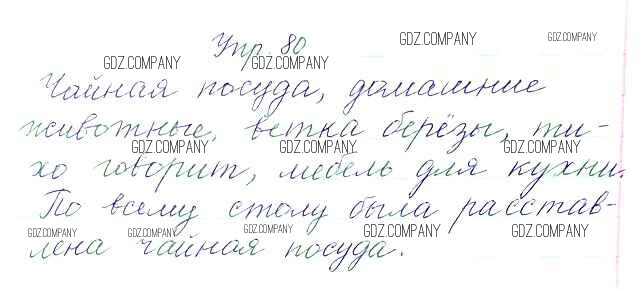 Упр. 80
GDZ.COMPANY GDZ.COMPANY
GDZ.COMPANY GDZ.COMPANY
Чайная посуда, домашние
животные, ветка берёзы, ти-
GDZ.COMPANY GDZ.COMPANY GDZ.COMPANY
хо говорит, мебель для кухни.
По всему столу была расстав-
GDZ.COMPANY GDZ.COMPANY GDZ.COMPANY GDZ.COMPANY GDZ.COMPANY
лена чайная посуда.